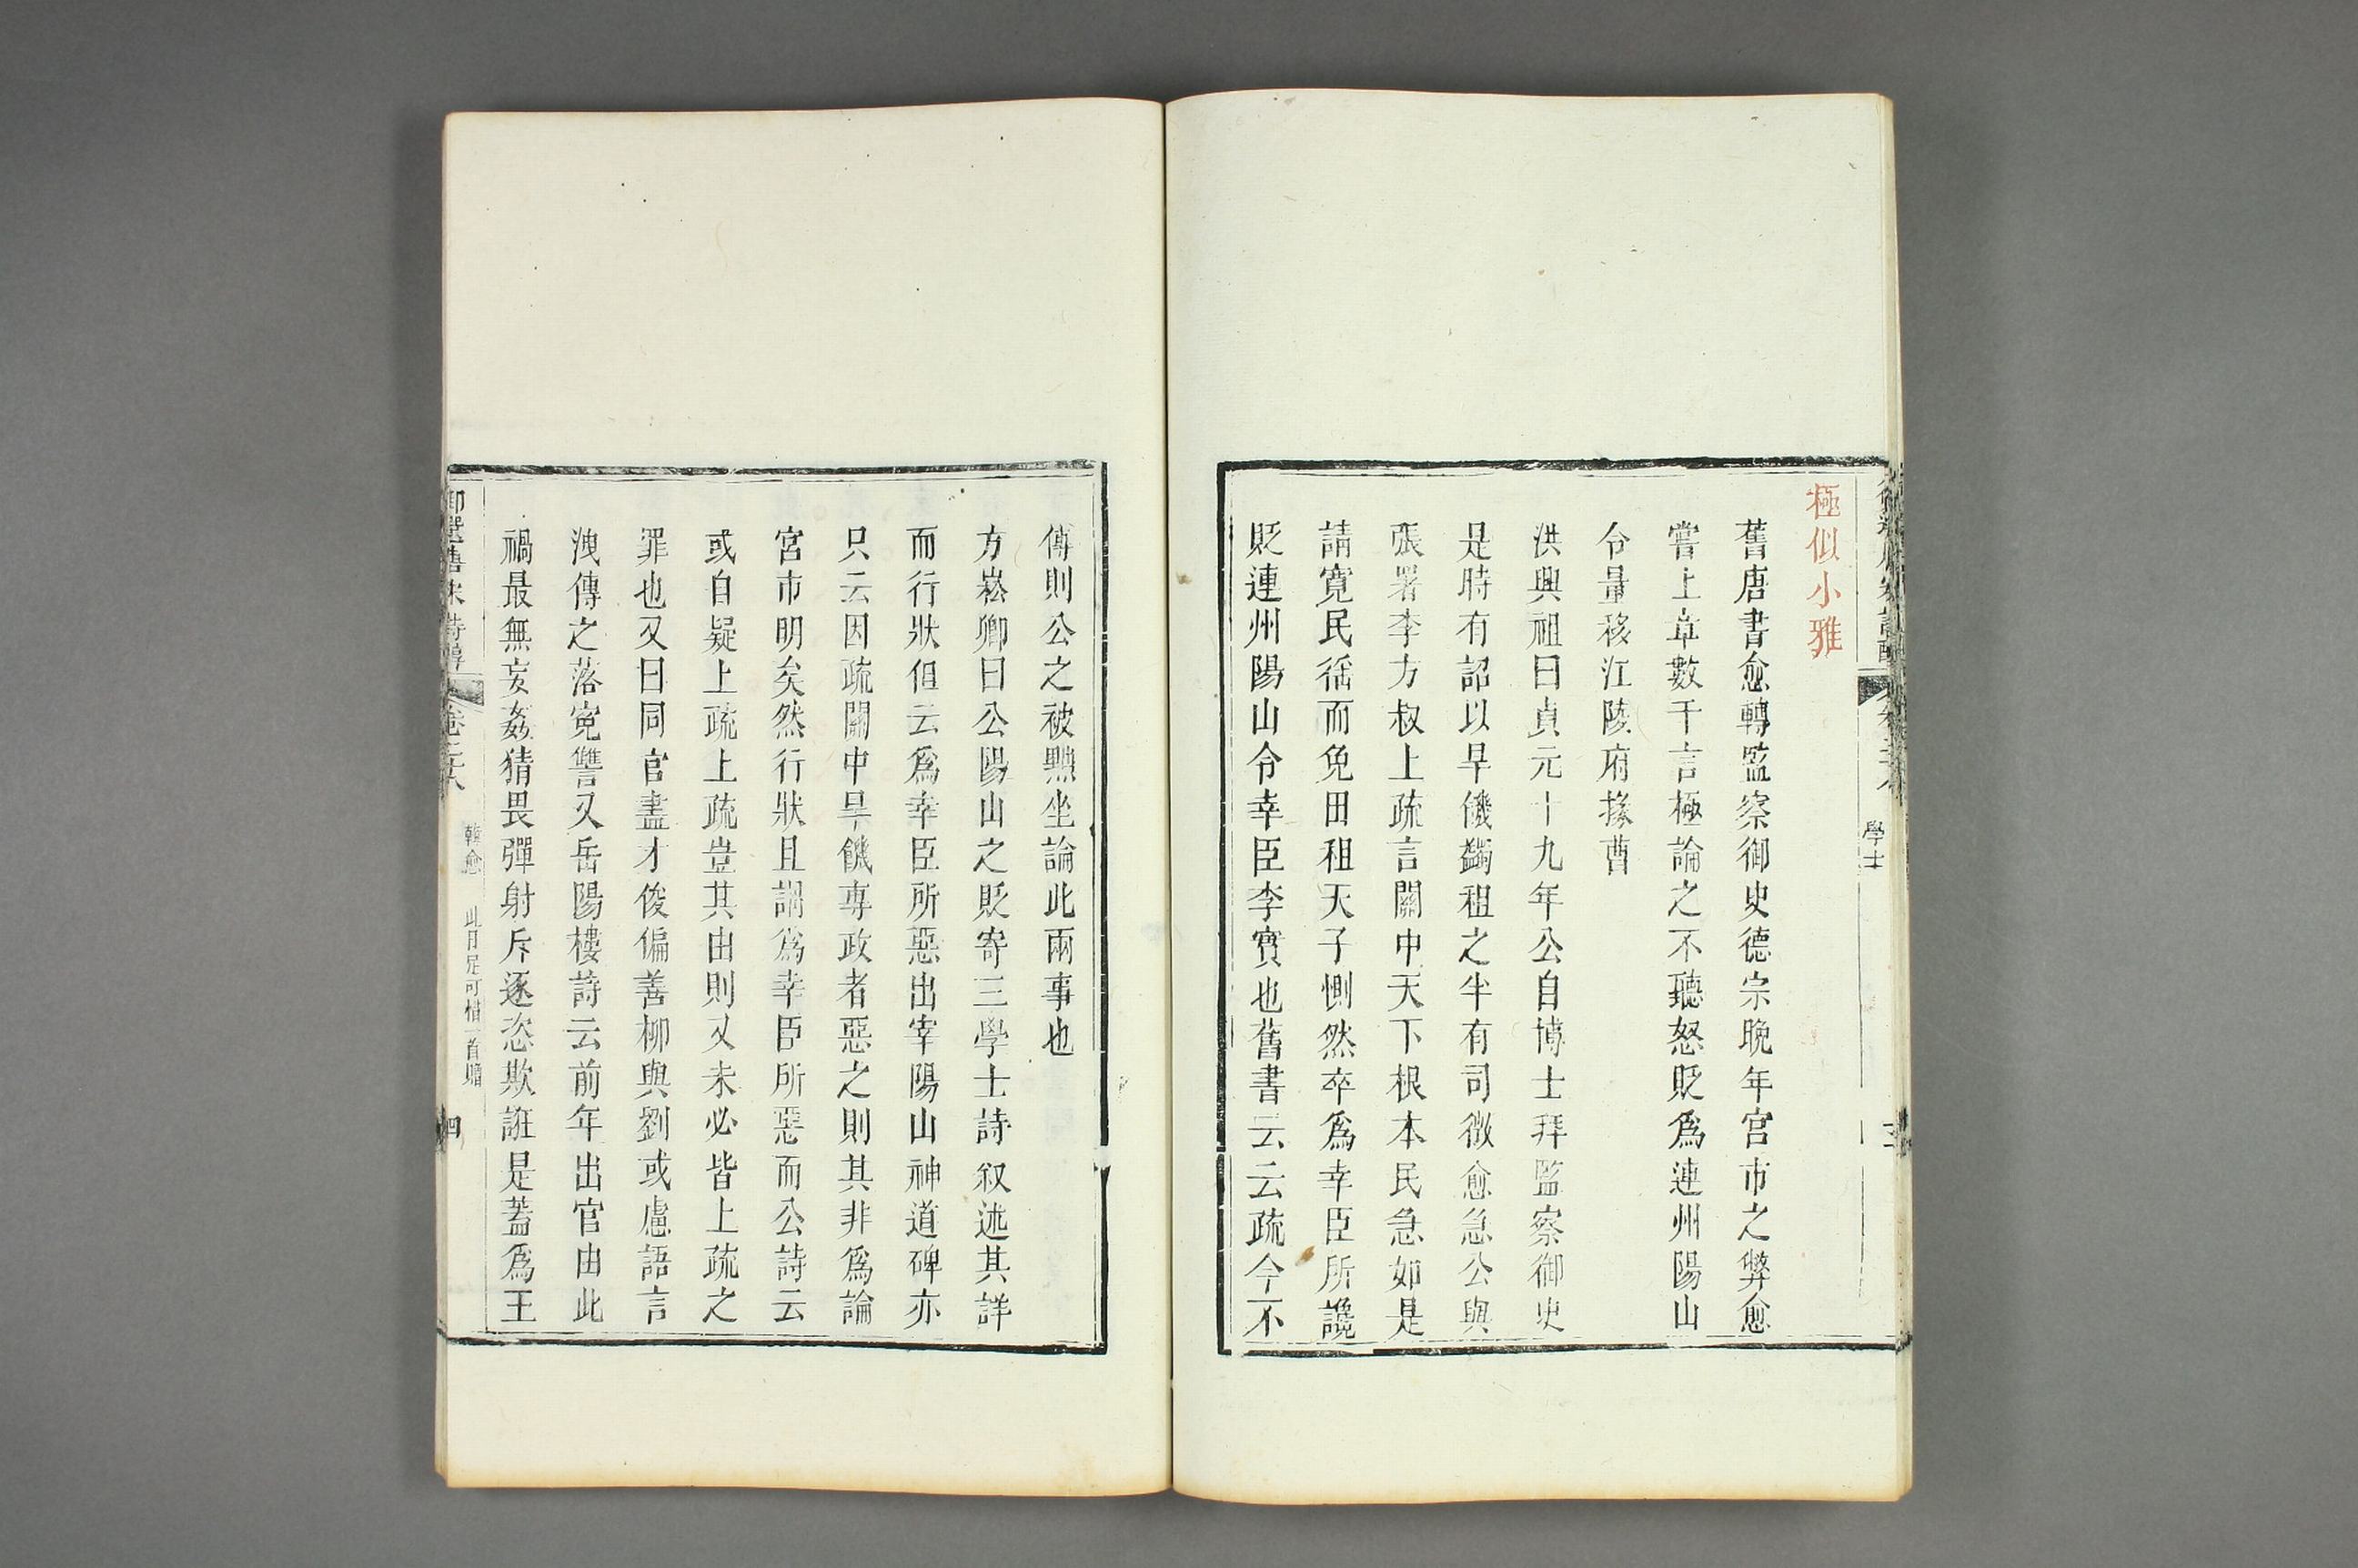 極似小雅
舊唐書愈轉監察御史德宗晚年宮市之弊愈
嘗上章數千言極論之不聽怒貶爲連州陽山
令量移江陵府掾曹
洪興祖曰貞元十九年公自博士拜監察御史
是時有詔以旱饑蠲租之半有司徵愈急公與
張署李方叔上疏言關中天下根本民急如是
請寬民徭而免田租天子惻然卒爲幸臣所讒
貶連州陽山令幸臣李實也舊書云云疏今不
傳則公之被黜坐論此兩事也
方崧卿曰公陽山之貶寄三學士詩叙述其詳
而行狀但云爲幸臣所惡出宰陽山神道碑亦
只云因疏關中旱饑專政者惡之則其非爲論
宮市明矣然行狀且謂爲幸臣所惡而公詩云
或自疑上疏上疏豈其由則又未必皆上疏之
罪也又曰同官盡才俊偏善柳與劉或慮語言
洩傳之落寃讐又岳陽樓詩云前年出官由此
禍最無妄姦猜畏彈射斥逐恣欺誑是蓋爲王
御選唐宋詩醇
卷二十八
韓愈
四